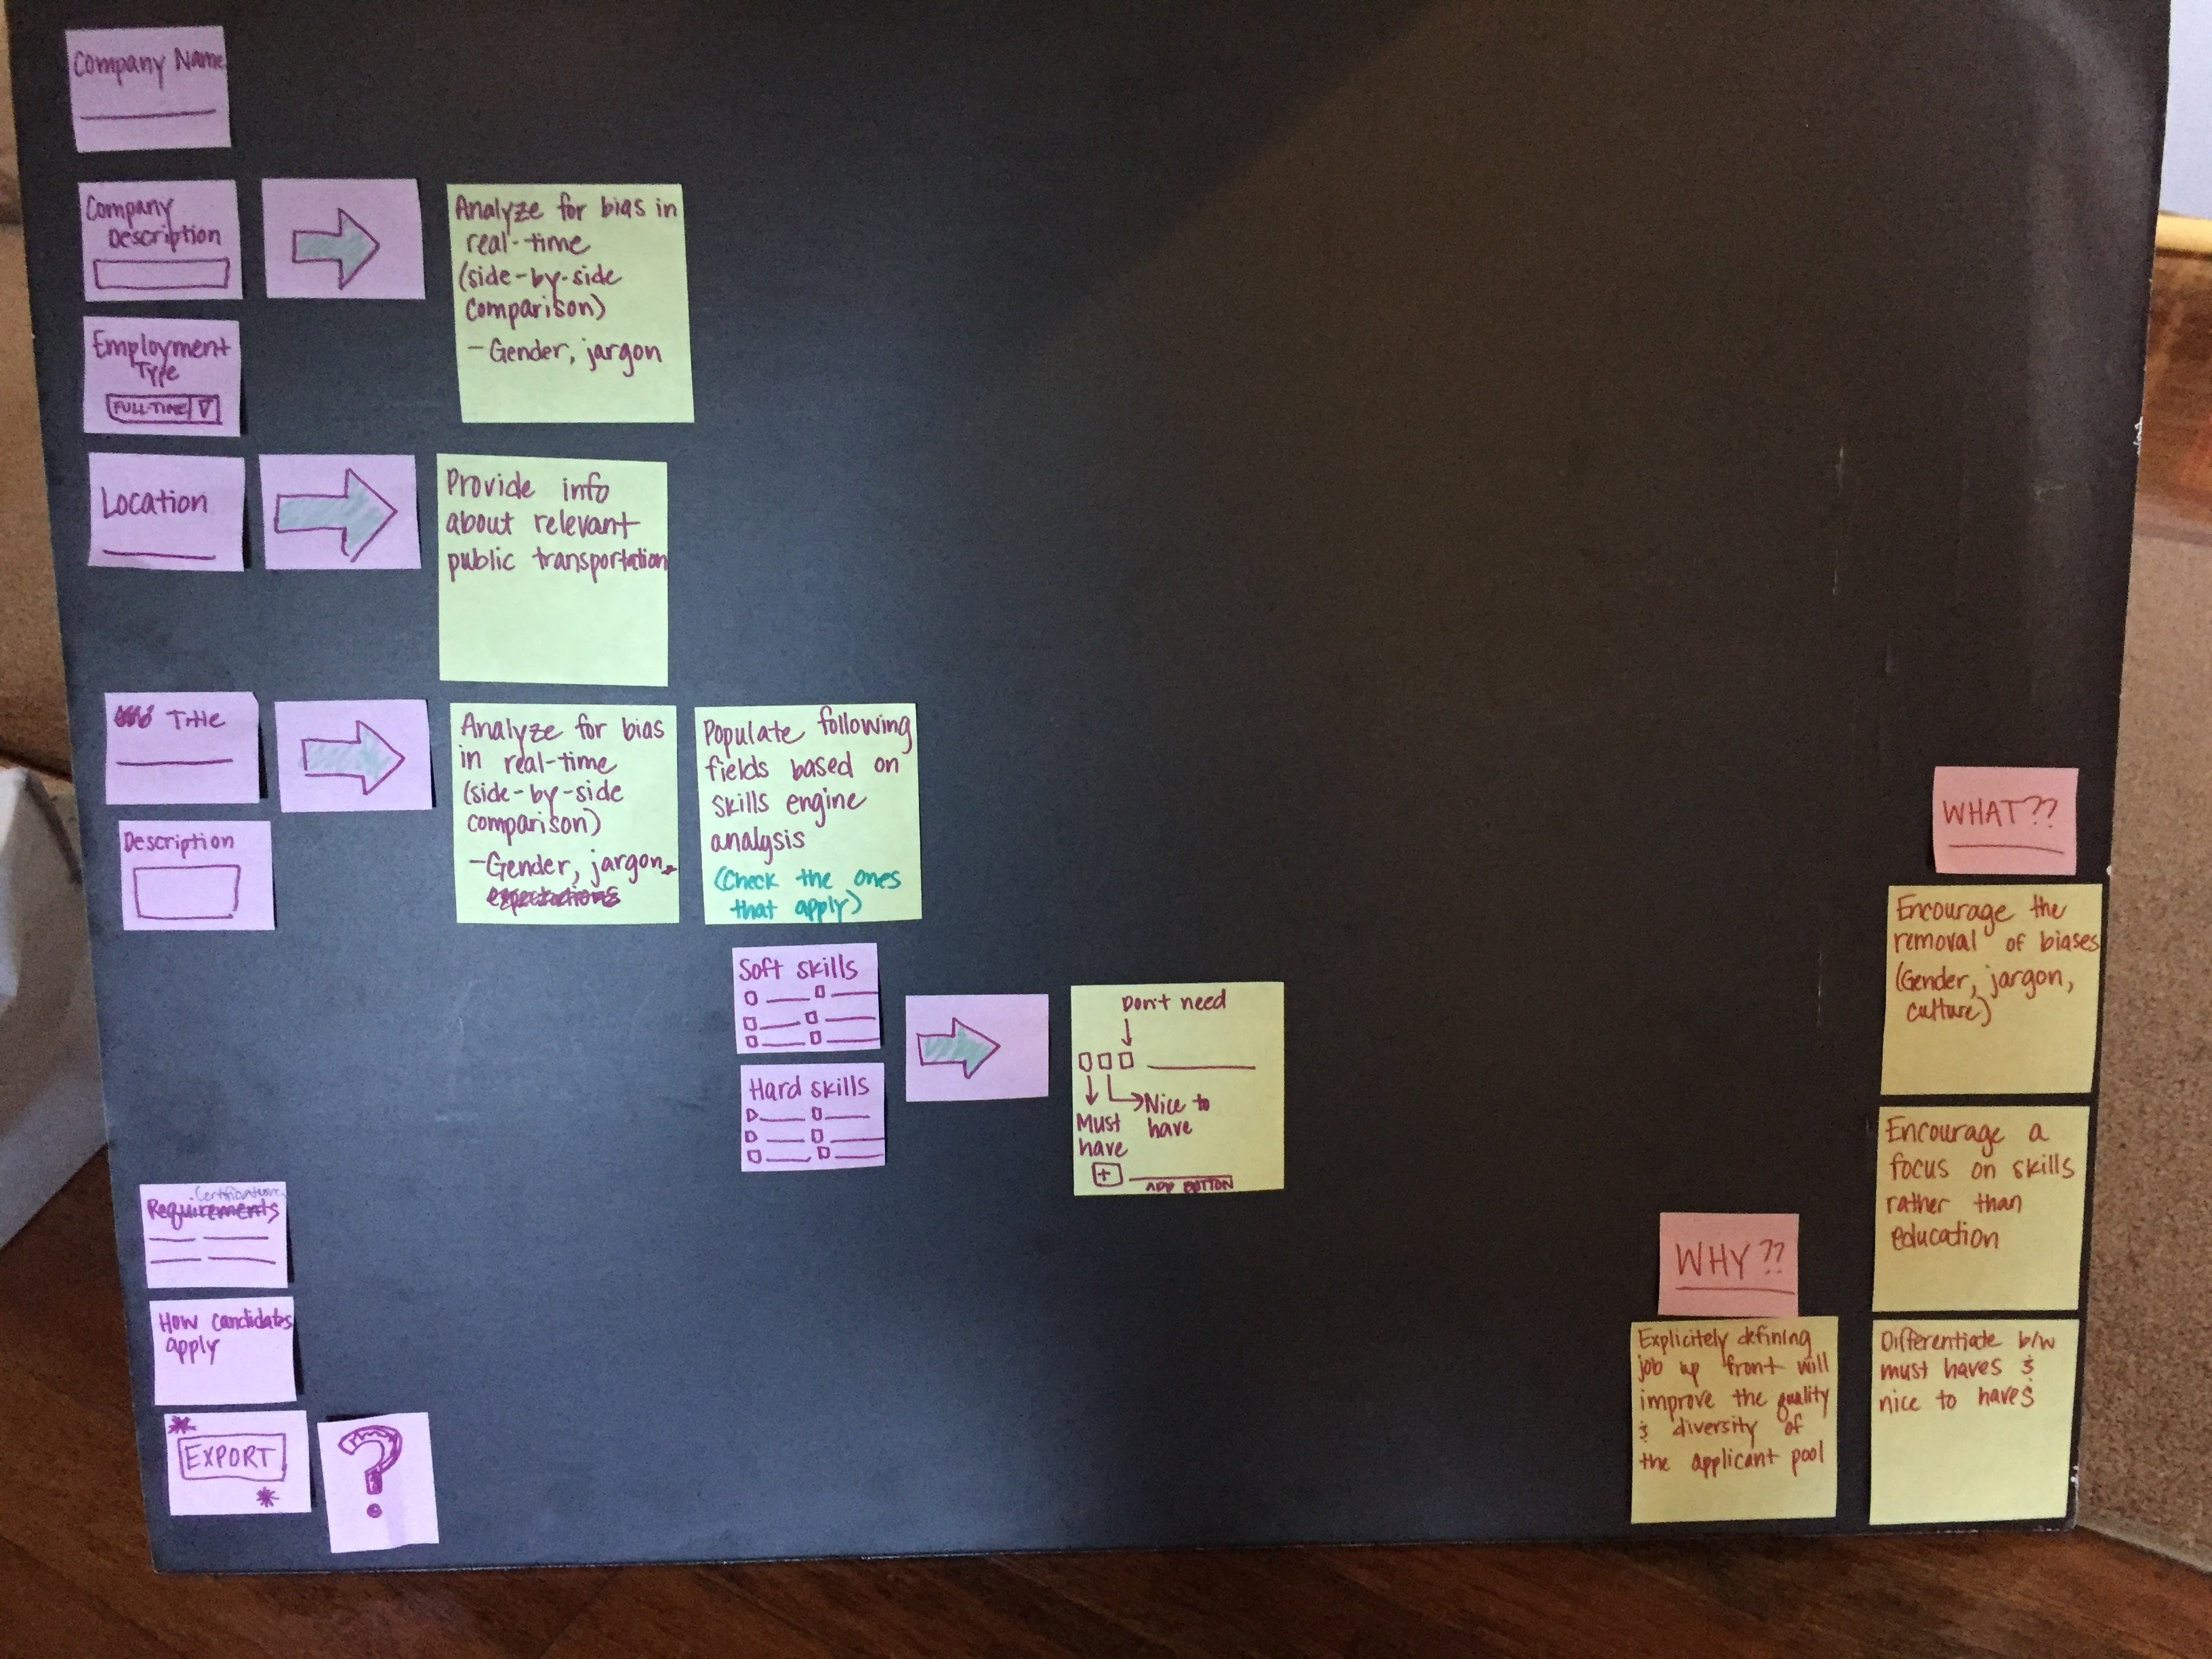 Company Name
Company
Description
Analyze for bias in
real-time
(side-by-side
comparison)
-Gender, jargon
Employment
Type
FULL-TIME
Location
Provide info
about relevant
public transportation
Title
Description
Analyze for bias
in real-time
(side-by-side
comparison)
-Gender, jargon
expectations
Populate following
fields based on
skills engine
analysis
(Check the ones
that apply)
Soft skills
Hard skills
Don't need
Nice to
have
Must
have
+
ADD BUTTON
Certifications
Requirements
How candidates
apply
* EXPORT *
?
WHAT??
Encourage the
removal of biases
(Gender, jargon,
culture)
Encourage a
focus on skills
rather than
education
Differentiate b/w
must haves &
nice to haves
WHY??
Explicitely defining
job up front will
improve the quality
& diversity of
the applicant pool